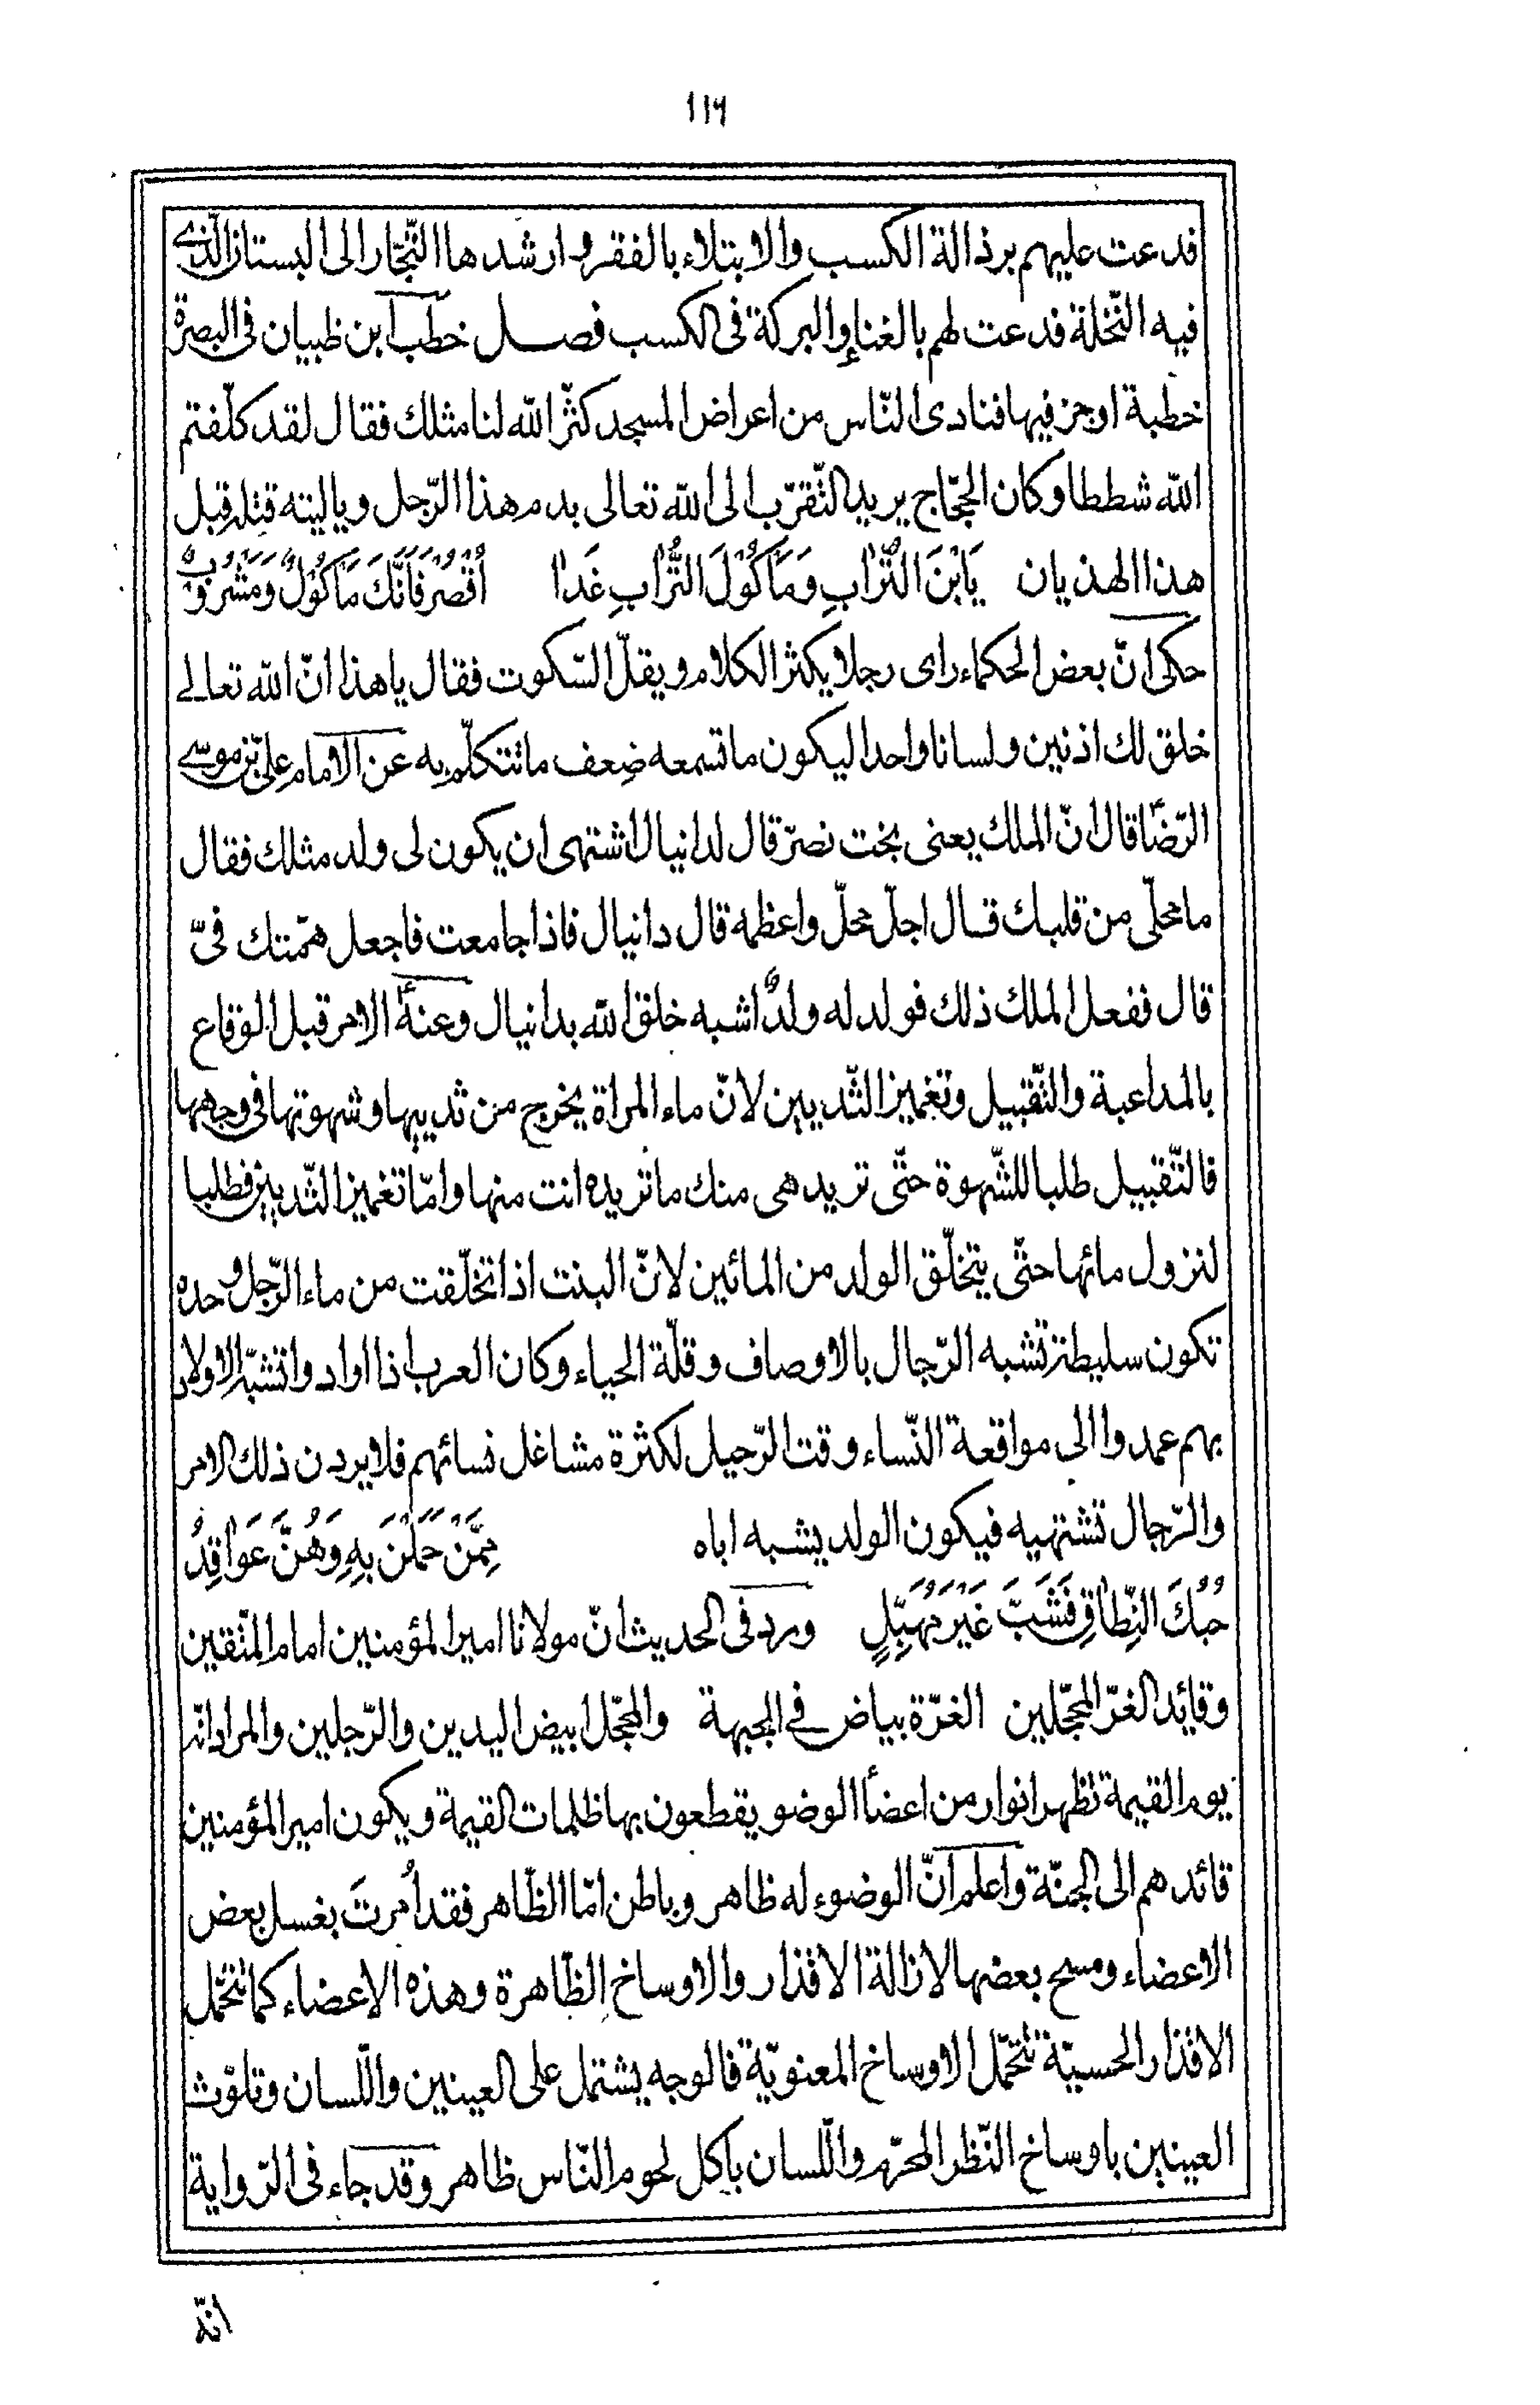 ١١٦
فدعت عليهم برذالة الكسب والابتلاء بالفقر وارشدها النّجّار الى البستان الّذى
فيه النّخلة فدعت لهم بالغناء والبركة فى الكسب فصل خطب ابن ظبيان فى البصرة
خطبة اوجز فيها فنادى النّاس من اعراض المسجد كثّر الله لنا مثلك فقال لقد كلّفتم
الله شططا وكان الحجّاج يريد التّقرّب الى الله تعالى بدم هذا الرّجل وياليته قتله قبل
هذا الهذيان يَابْنَ التُّرابِ وَمَأكُولَ التُّرابِ غَدا اُقْصُرْ فَاَنَّكَ مَأكُولٌ وَمَشْرُوبٌ
حكى انّ بعض الحكماء راى رجلا يكثر الكلام ويقلّ السّكوت فقال ياهذا انّ الله تعالى
خلق لك اذنين ولسانا واحدا ليكون ما تسمعه ضعف ما تتكلّم به عن الامام على بن موسى
الرّضا قال انّ الملك يعنى بخت نصّر قال لدانيال اشتهى ان يكون لى ولد مثلك فقال
ما محلّى من قلبك قال اجلّ محلّ واعظمه قال دانيال فاذا جامعت فاجعل همّتك فىّ
قال ففعل الملك ذلك فولد له ولدٌ اشبه خلق الله بدانيال وعنه الامر قبل الوقاع
بالمداعبة والتّقبيل وتغميز الثّديين لانّ ماء المراة يخرج من ثدييها وشهوتها فى وجهها
فالتّقبيل طلبا للشّهوة حتّى تريد هى منك ما تريده انت منها وامّا تغميز الثّديين فطلبا
لنزول مائها حتّى يتخلّق الولد من المائين لانّ البنت اذا تخلّقت من ماء الرّجل وحده
تكون سليطة تشبه الرّجال بالاوصاف وقلّة الحياء وكان العرب اذا ارادوا تشبّه الاولاد
بهم عمدوا الى مواقعة النّساء وقت الرّحيل لكثرة مشاغل نسائهم فلا يردن ذلك الامر
والرّجال تشتهيه فيكون الولد يشبه اباه مِمَّنْ حَمَلْنَ بِهِ وَهُنَّ عَواقِدُ
حُبُكَ النِّطاقِ فَشَبَّ غَيْرَ مُهَبَّلٍ ورد فى الحديث انّ مولانا امير المؤمنين امام المتّقين
وقائد الغرّ المحجّلين الغرّة بياض فى الجبهة والمحجّل ابيض اليدين والرّجلين والمراد انّه
يوم القيمة تظهر انوار من اعضاء الوضو يقطعون بها ظلمات القيمة ويكون امير المؤمنين
قائدهم الى الجنّة واعلم انّ الوضوء له ظاهر وباطن امّا الظّاهر فقد اُمرتَ بغسل بعض
الاعضاء ومسح بعضها لازالة الاقذار والاوساخ الظّاهرة وهذه الاعضاء كما تتحّمل
الاقذار الحسيّة تتحّمل الاوساخ المعنويّة فالوجه يشتمل على العينين واللّسان وتلوّث
العينين باوساخ النّظر المحرّم واللّسان باكل لحوم النّاس ظاهر وقد جاء فى الرّواية
انّه